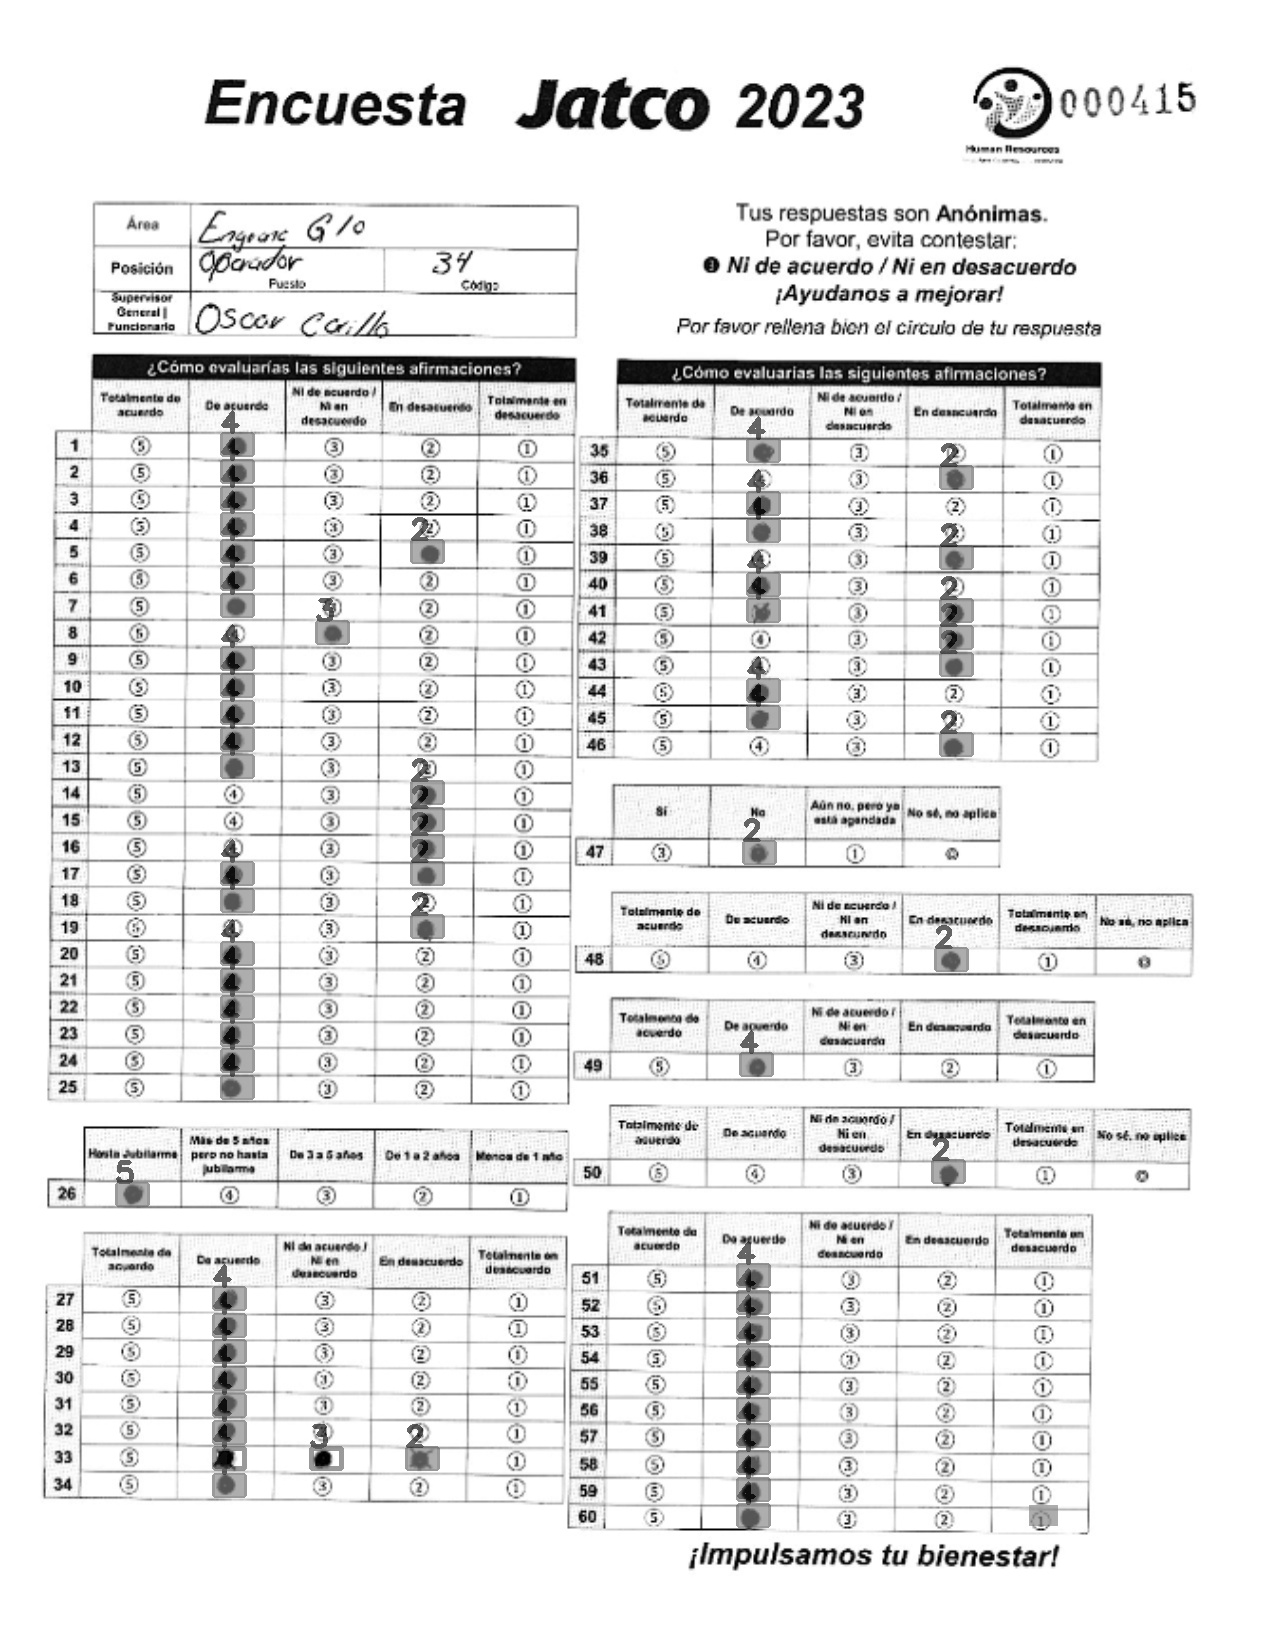 Encuesta Jatco 2023
Human Resources
000415
Área Engrane G10
Posición Operador 34
Puesto Código
Supervisor General | Funcionario Oscar Carillo
Tus respuestas son Anónimas.
Por favor, evita contestar:
❸ Ni de acuerdo / Ni en desacuerdo
¡Ayudanos a mejorar!
Por favor rellena bien el circulo de tu respuesta
¿Cómo evaluarías las siguientes afirmaciones?
Totalmente de acuerdo De acuerdo Ni de acuerdo / Ni en desacuerdo En desacuerdo Totalmente en desacuerdo
4
1 5 4 3 2 1
2 5 4 3 2 1
3 5 4 3 2 1
4 5 4 3 2 1
5 5 4 3 1
6 5 4 3 2 1
7 5 3 2 1
8 5 4 2 1
9 5 4 3 2 1
10 5 4 3 2 1
11 5 4 3 2 1
12 5 4 3 2 1
13 5 3 2 1
14 5 4 3 2 1
15 5 4 3 2 1
16 5 4 3 2 1
17 5 4 3 1
18 5 3 2 1
19 5 4 3 1
20 5 4 3 2 1
21 5 4 3 2 1
22 5 4 3 2 1
23 5 4 3 2 1
24 5 4 3 2 1
25 5 3 2 1
Hasta Jubilarme Más de 5 años pero no hasta jubilarme De 3 a 5 años De 1 a 2 años Menos de 1 año
5
26 4 3 2 1
Totalmente de acuerdo De acuerdo Ni de acuerdo / Ni en desacuerdo En desacuerdo Totalmente en desacuerdo
4
27 5 4 3 2 1
28 5 4 3 2 1
29 5 4 3 2 1
30 5 4 3 2 1
31 5 4 3 2 1
32 5 4 3 2 1
33 5 4 1
34 5 3 2 1
¿Cómo evaluarías las siguientes afirmaciones?
Totalmente de acuerdo De acuerdo Ni de acuerdo / Ni en desacuerdo En desacuerdo Totalmente en desacuerdo
4
35 5 3 2 1
36 5 4 3 1
37 5 4 3 2 1
38 5 3 2 1
39 5 4 3 1
40 5 4 3 2 1
41 5 3 2 1
42 5 4 3 2 1
43 5 4 3 1
44 5 4 3 2 1
45 5 3 2 1
46 5 4 3 1
Sí No Aún no, pero ya está agendada No sé, no aplica
2
47 3 1
Totalmente de acuerdo De acuerdo Ni de acuerdo / Ni en desacuerdo En desacuerdo Totalmente en desacuerdo No sé, no aplica
2
48 5 4 3 1
Totalmente de acuerdo De acuerdo Ni de acuerdo / Ni en desacuerdo En desacuerdo Totalmente en desacuerdo
4
49 5 3 2 1
Totalmente de acuerdo De acuerdo Ni de acuerdo / Ni en desacuerdo En desacuerdo Totalmente en desacuerdo No sé, no aplica
2
50 5 4 3 1
Totalmente de acuerdo De acuerdo Ni de acuerdo / Ni en desacuerdo En desacuerdo Totalmente en desacuerdo
4
51 5 4 3 2 1
52 5 4 3 2 1
53 5 4 3 2 1
54 5 4 3 2 1
55 5 4 3 2 1
56 5 4 3 2 1
57 5 4 3 2 1
58 5 4 3 2 1
59 5 4 3 2 1
60 5 3 2 1
¡Impulsamos tu bienestar!